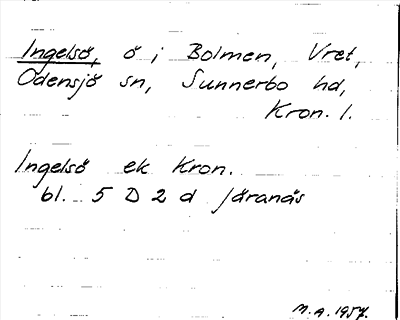 Ingelsö, ö i Bolmen, Vret,
Odensjö sn, Sunnerbo hd,
Kron. l.
Ingelsö ek Kron.
bl. 5 D 2 d Järanäs
M.A. 1957.